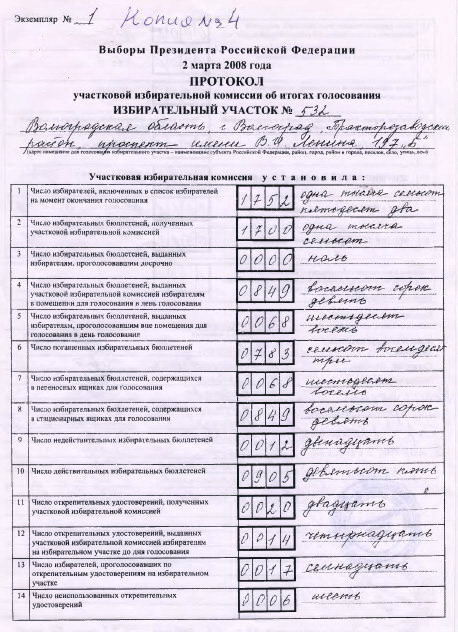 Экземпляр № 1 Копия № 4
Выборы Президента Российской Федерации
2 марта 2008 года
ПРОТОКОЛ
участковой избирательной комиссии об итогах голосования
ИЗБИРАТЕЛЬНЫЙ УЧАСТОК № 532
Волгоградская область, г. Волгоград, Тракторозаводский
район, проспект имени В.И. Ленина 197 "б"
Участковая избирательная комиссия установила:
1 Число избирателей, включенных в список избирателей
на момент окончания голосования 1752 одна тысяча семьсот
пятьдесят два
2 Число избирательных бюллетеней, полученных
участковой избирательной комиссией 1700 одна тысяча
семьсот
3 Число избирательных бюллетеней, выданных
избирателям, проголосовавшим досрочно 0000 ноль
4 Число избирательных бюллетеней, выданных
участковой избирательной комиссией избирателям
в помещении для голосования в день голосования 0849 восемьсот сорок
девять
5 Число избирательных бюллетеней, выданных
избирателям, проголосовавшим вне помещения для
голосования в день голосования 0068 шестьдесят
восемь
6 Число погашенных избирательных бюллетеней 0783 семьсот восемьдесят
три
7 Число избирательных бюллетеней, содержащихся
в переносных ящиках для голосования 0068 шестьдесят
восемь
8 Число избирательных бюллетеней, содержащихся
в стационарных ящиках для голосования 0849 восемьсот сорок
девять
9 Число недействительных избирательных бюллетеней 0012 двенадцать
10 Число действительных избирательных бюллетеней 0905 девятьсот пять
11 Число открепительных удостоверений, полученных
участковой избирательной комиссией 0020 двадцать
12 Число открепительных удостоверений, выданных
участковой избирательной комиссией избирателям
на избирательном участке до дня голосования 0014 четырнадцать
13 Число избирателей, проголосовавших по
открепительным удостоверениям на избирательном
участке 0017 семнадцать
14 Число неиспользованных открепительных
удостоверений 0006 шесть